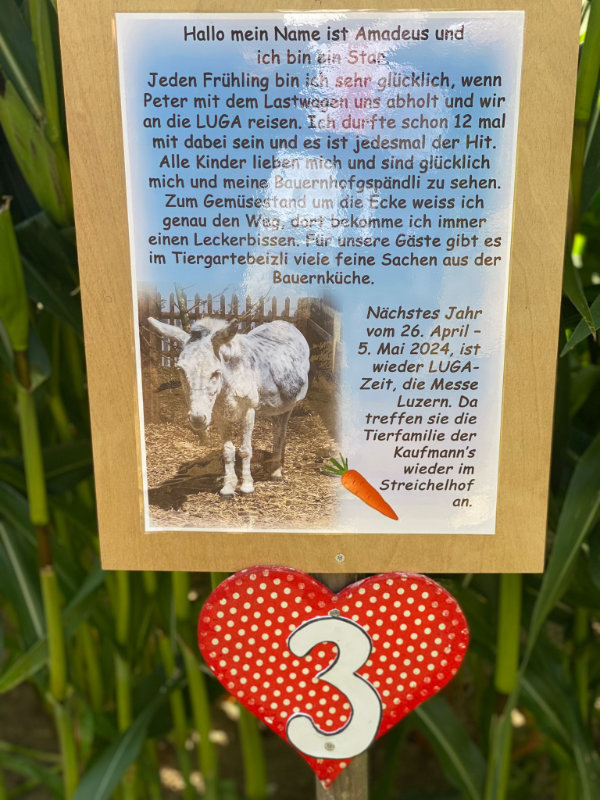 Hallo mein Name ist Amadeus und
ich bin ein Star.
Jeden Frühling bin ich sehr glücklich, wenn
Peter mit dem Lastwagen uns abholt und wir
an die LUGA reisen. Ich durfte schon 12 mal
mit dabei sein und es ist jedesmal der Hit.
Alle Kinder lieben mich und sind glücklich
mich und meine Bauernhofgspändli zu sehen.
Zum Gemüsestand um die Ecke weiss ich
genau den Weg, dort bekomme ich immer
einen Leckerbissen. Für unsere Gäste gibt es
im Tiergartebeizli viele feine Sachen aus der
Bauernküche.
Nächstes Jahr
vom 26. April –
5. Mai 2024, ist
wieder LUGA-
Zeit, die Messe
Luzern. Da
treffen sie die
Tierfamilie der
Kaufmann's
wieder im
Streichelhof
an.
3